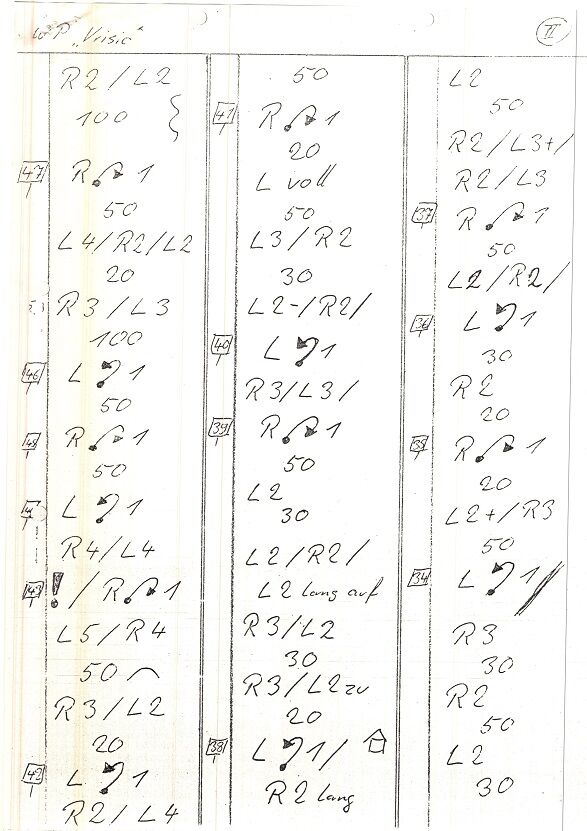 WP „Vrsic"
II
R2/L2
100
47 R 1
50
L4/R2/L2
20
R3/L3
100
46 L 1
50
R 1
50
L 1
R4/L4
43 ! / R 1
L5/R4
50
R3/L2
20
42 L 1
R2/L4
50
41 R 1
20
L voll
50
L3/R2
30
L2-/R2/
40 L 1
R3/L3/
39 R 1
50
L2
30
L2/R2/
L2 lang auf
R3/L2
30
R3/L2 zu
20
38 L 1/
R2 lang
L2
50
R2/L3+/
R2/L3
37 R 1
50
L2/R2/
36 L 1
30
R2
20
35 R 1
20
L2+/R3
50
34 L 1//
R3
30
R2
50
L2
30